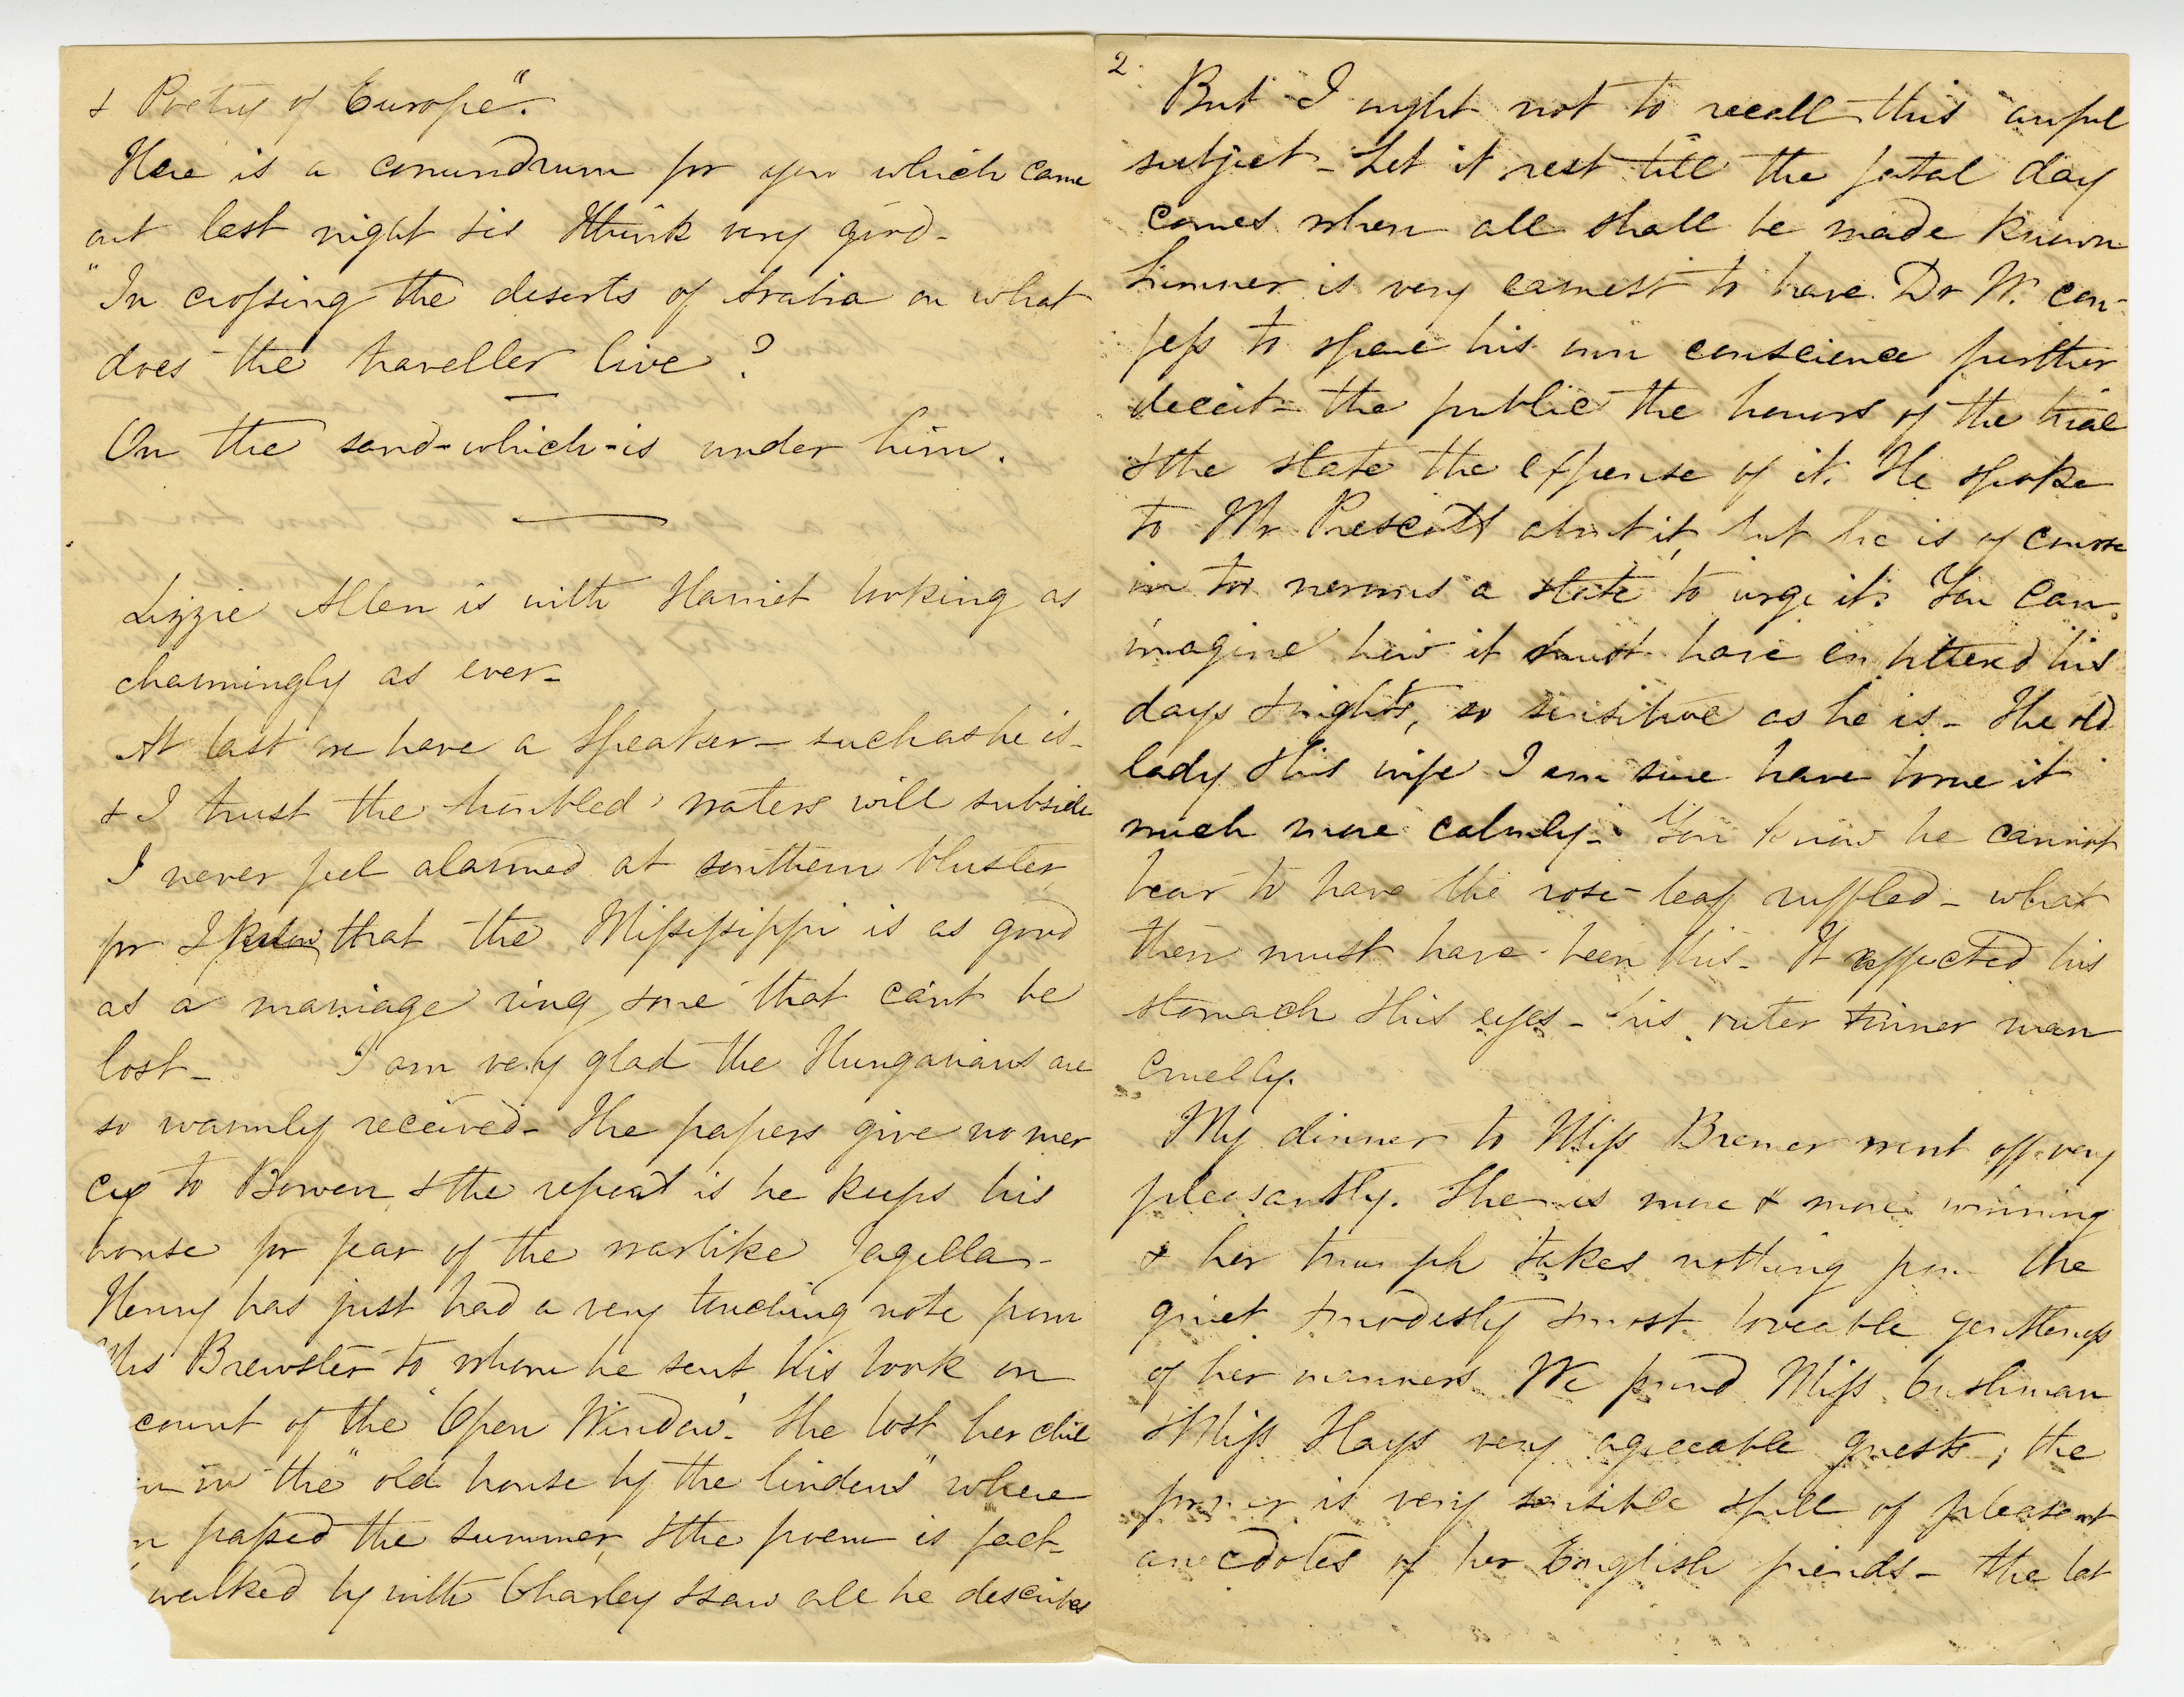 & Poetry of Europe".
Here is a conundrum for you which came
out last night & is I think very good-
"In crossing the deserts of Arabia on what
does the traveller live?
On the sand-which-is under him.
Lizzie Allen is with Harriet looking as
charmingly as ever-
At last we have a Speaker- such as he is-
& I trust the troubled waters will subside
I never feel alarmed at southern bluster,
for I know that the Mississippi is as good
as a marriage ring & one that cant be
lost- I am very glad the Hungarians are
so warmly received- The papers give no mer
cy to Bowen, & the report is he keeps his
house for fear of the warlike Jagella-
Henry has just had a very touching note from
Mrs Brewster to whom he sent his book on
count of the 'Open Window'. She lost her chil
n in the "old house by the lindens" where
passed the summer, & the poem is fact-
walked by with Charley & saw all he describes
2.
But I ought not to recall this awful
subject- Let it rest till the fatal day
comes when all shall be made known
Sumner is very earnest to have Dr W. con-
fess to spare his own conscience further
deceit- the public the horrors of the trial
& the state the expense of it. He spoke
to Mr Prescott about it, but he is of course
in too nervous a state to urge it. You can
imagine how it must have embittered his
days & nights, so sensitive as he is- The old
lady & his wife I am sure have borne it
much more calmly- You know he cannot
bear to have the rose-leaf ruffled- what
then must have been this- It affected his
stomach & his eyes- his outer & inner man
cruelly.
My dinner to Miss Bremer went off very
pleasantly. She is more & more winning
& her triumph takes nothing from the
quiet & modesty & most loveable gentleness
of her manners. We found Miss Cushman
& Miss Hays very agreeable guests; the
former is very sensible & full of pleasant
anecdotes of her English friends- the lat